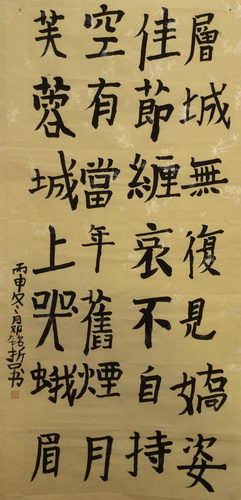 層城無復見嬌姿
佳節纏哀不自持
空有當年舊煙月
芙蓉城上哭蛾眉
丙申冬月